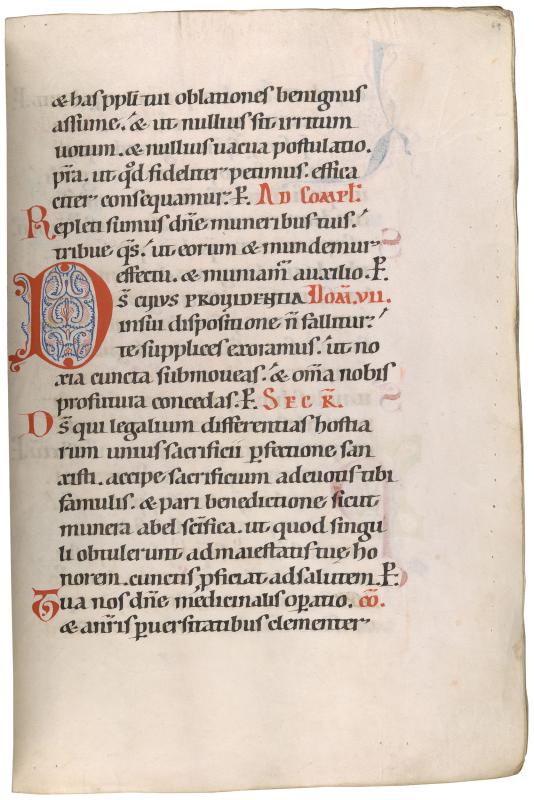 & has ppłi tui oblationes benignus
assume. & ut nullius sit irritum
uotum. & nullius uacua postulatio.
p̄ta. ut qđ fideliter petimus. effica
citer consequamur. P̄. AD COMPL̄.
Repleti sumus dn̄e muneribus tuis.
tribue qs̄. ut eorum & mundemur
effectu. & muniam̄ auxilio. P̄.
DS̄ CUIUS PROUIDENTIA DOM̄. VII.
in sui dispositione n̄ fallitur.
te supplices exoramus. ut no
xia cuncta submoueas. & om̄a nobis
profutura concedas. P̄. SECR̄.
Ds̄ qui legalium differentias hostia
rum unius sacrificii ꝑfectione san
xisti. accipe sacrificium a deuotis tibi
famulis. & pari benedictione sicut
munera abel sc̄ifica. ut quod singu
li obtulerunt ad maiestatis tuę ho
norem. cunctis ꝓficiat ad salutem. P̄.
Tua nos dn̄e medicinalis oꝑatio. CŌ.
& a nr̄is ꝑuersitatibus clementer